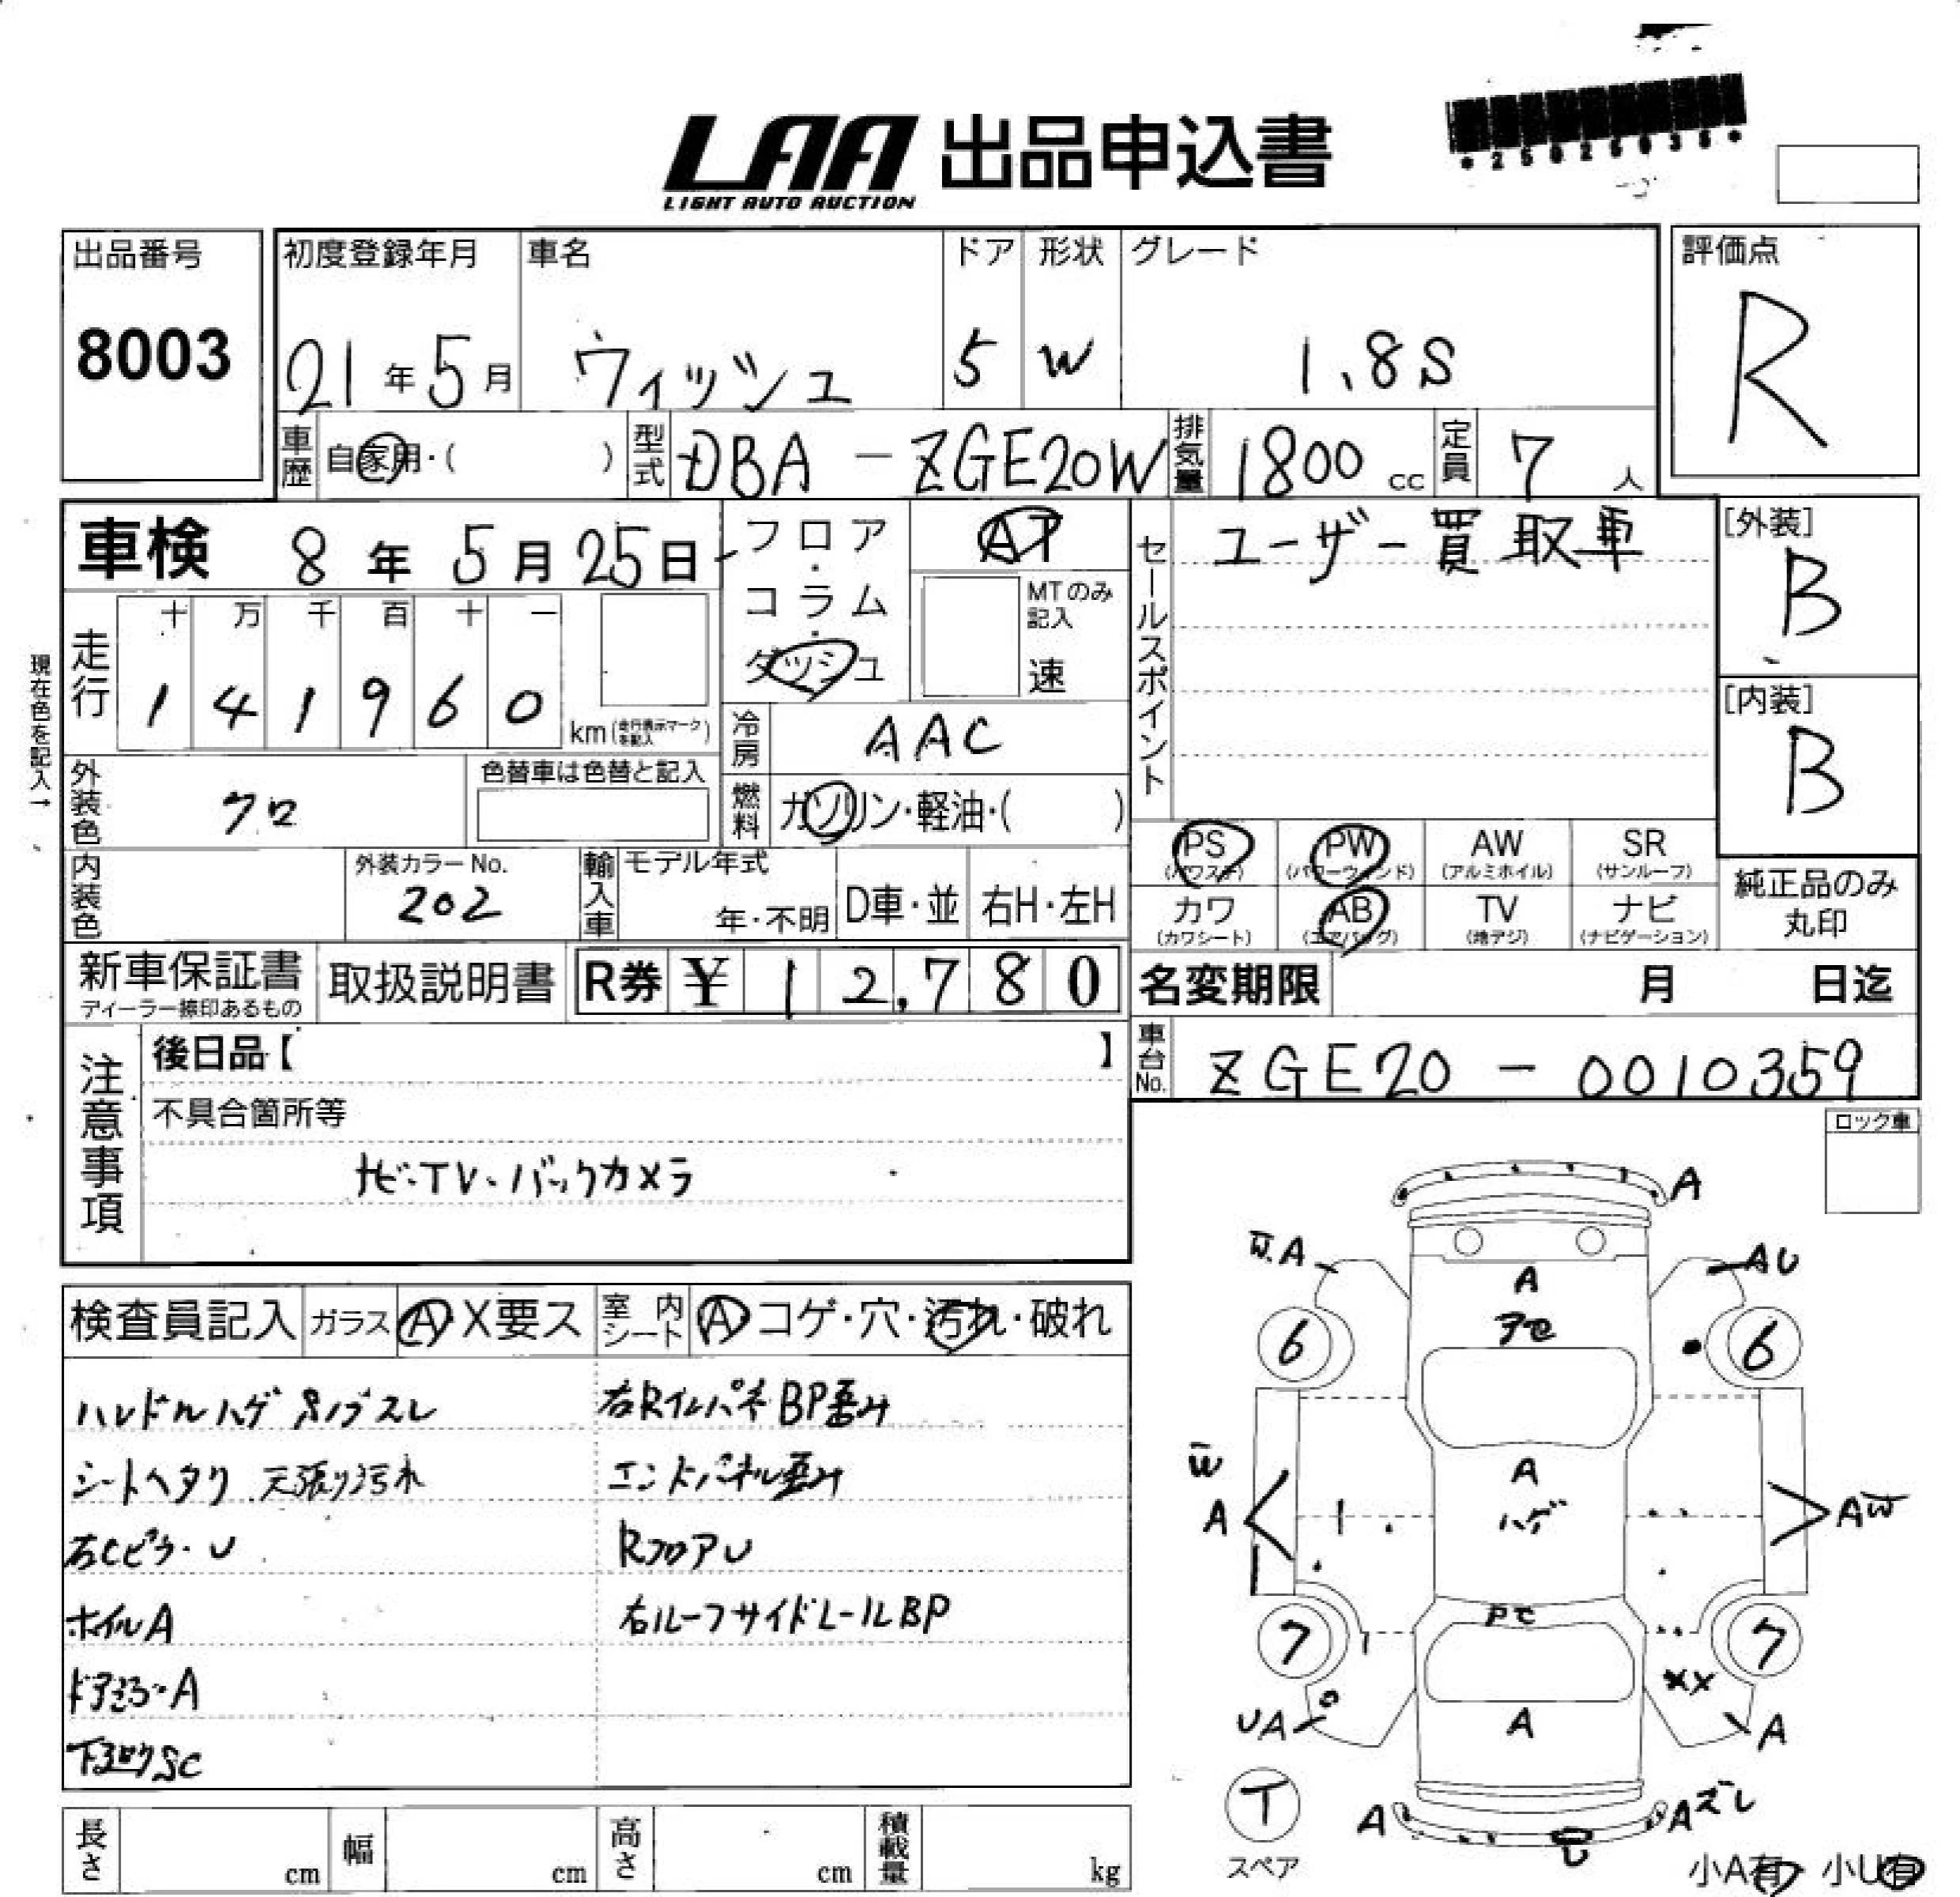 LAA 出品申込書
LIGHT AUTO AUCTION
*25025035*
出品番号
8003
初度登録年月
21年5月
車名
ウィッシュ
ドア
5
形状
W
グレード
1.8S
評価点
R
車歴 自家用・( )
型式 DBA-ZGE20W
排気量 1800 cc
定員 7 人
車検 8年5月25日
フロア・コラム・ダッシュ
AT
MTのみ記入
速
セールスポイント
ユーザー買取車
[外装]
B
[内装]
B
現在色を記入→
走行
十 万 千 百 十 一
1 4 1 9 6 0
km(走行表示マークを記入)
冷房 AAC
外装色 クロ
色替車は色替と記入
燃料 ガソリン・軽油・( )
PS (パワステ)
PW (パワーウィンド)
AW (アルミホイル)
SR (サンルーフ)
カワ (カワシート)
AB (エアバッグ)
TV (地デジ)
ナビ (ナビゲーション)
純正品のみ丸印
内装色
外装カラーNo.
202
輸入車
モデル年式
年・不明
D車・並
右H・左H
新車保証書
ディーラー捺印あるもの
取扱説明書
R券 ¥12,780
名変期限 月 日迄
車台No. ZGE20-0010359
注意事項
後日品【 】
不具合箇所等
ナビ・TV・バックカメラ
ロック車
検査員記入
ガラス A X要ス
室内シート A コゲ・穴・汚れ・破れ
ハンドルハゲ ノブスレ
シートヘタリ 天張り汚れ
右Cピラ・U
ホイルA
ドアミラーA
下回りSC
右RインパネBP歪み
エンドパネル歪み
RフロアU
右ルーフサイドレールBP
A
W.A
AU
A
アセ
6
6
W
A
A
ハゲ
AW
アセ
7
7
XX
UA
A
A
T
スペア
A
Aズレ
U
小A有・小U有
長さ cm
幅 cm
高さ cm
積載量 kg